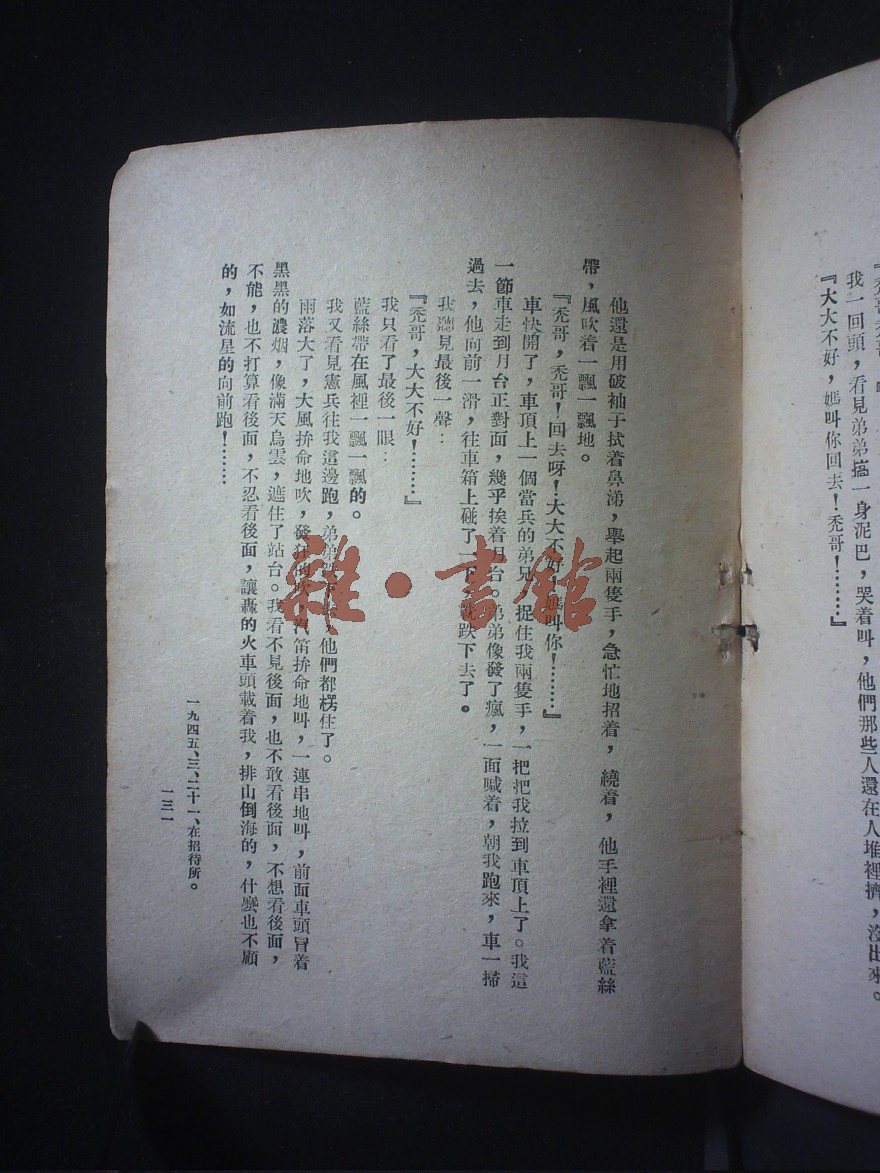 『禿哥禿哥！』
我一回頭，看見弟弟搞一身泥巴，哭着叫，他們那些人還在人堆裡擠，沒出來。
『大大不好，媽叫你回去！禿哥！………』
他還是用破袖子拭着鼻涕，舉起兩隻手，急忙地招着，繞着，他手裡還拿着藍絲
帶，風吹着一飄一飄地。
『禿哥，禿哥！回去呀！大大不好！媽叫你！………』
車快開了，車頂上一個當兵的弟兄，捉住我兩隻手，一把把我拉到車頂上了。我這
一節車走到月台正對面，幾乎挨着月台。弟弟像發了瘋，一面喊着，朝我跑來，車一掃
過去，他向前一滑，往車箱上碰了一下，就跌下去了。
我聽見最後一聲：
『禿哥，大大不好！………』
我只看了最後一眼：
藍絲帶在風裡一飄一飄的。
我又看見憲兵往我這邊跑，弟弟，他們都楞住了。
雨落大了，大風拚命地吹，發狂的吹，汽笛拚命地叫，一連串地叫，前面車頭冒着
黑黑的濃烟，像滿天烏雲，遮住了站台。我看不見後面，也不敢看後面，不想看後面，
不能，也不打算看後面，不忍看後面，讓轟的火車頭載着我，排山倒海的，什麼也不顧
的，如流星的向前跑！………
一九四五、三、二十一、在招待所。
一三一
雜·書館